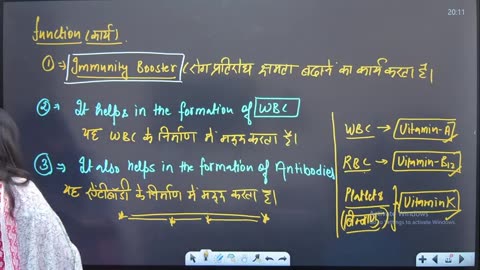 20:11
function (कार्य)
① ⇒ Immunity Booster (रोग प्रतिरोध क्षमता बढाने का कार्य करता है।
② ⇒ It helps in the formation of WBC
यह WBC के निर्माण में मदद करता है।
③ ⇒ It also helps in the formation of Antibodies
यह ऐंटीबाडी के निर्माण में मदद करता है।
WBC → Vitamin-A
RBC → Vitamin-B12
Platelets
(बिम्बाणु)
Vitamin K
Activate Windows
Go to Settings to activate Windows.